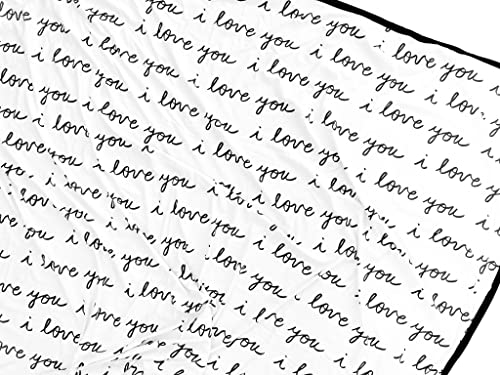 i love you i love you i love you i
love you i love you i love you i love you i lov
you i love you i love you i love you i love you
love you i love you i love you i love you i love you
love you i love you i love you i love you i love you
i love you i love you i love you i love you i love
love you i love you i love you i love you i love
you i love you i love you i love you
i love you i love you i love you i love
i love you i love you i love you i love
i love you i love you i
i love you i love you
i love